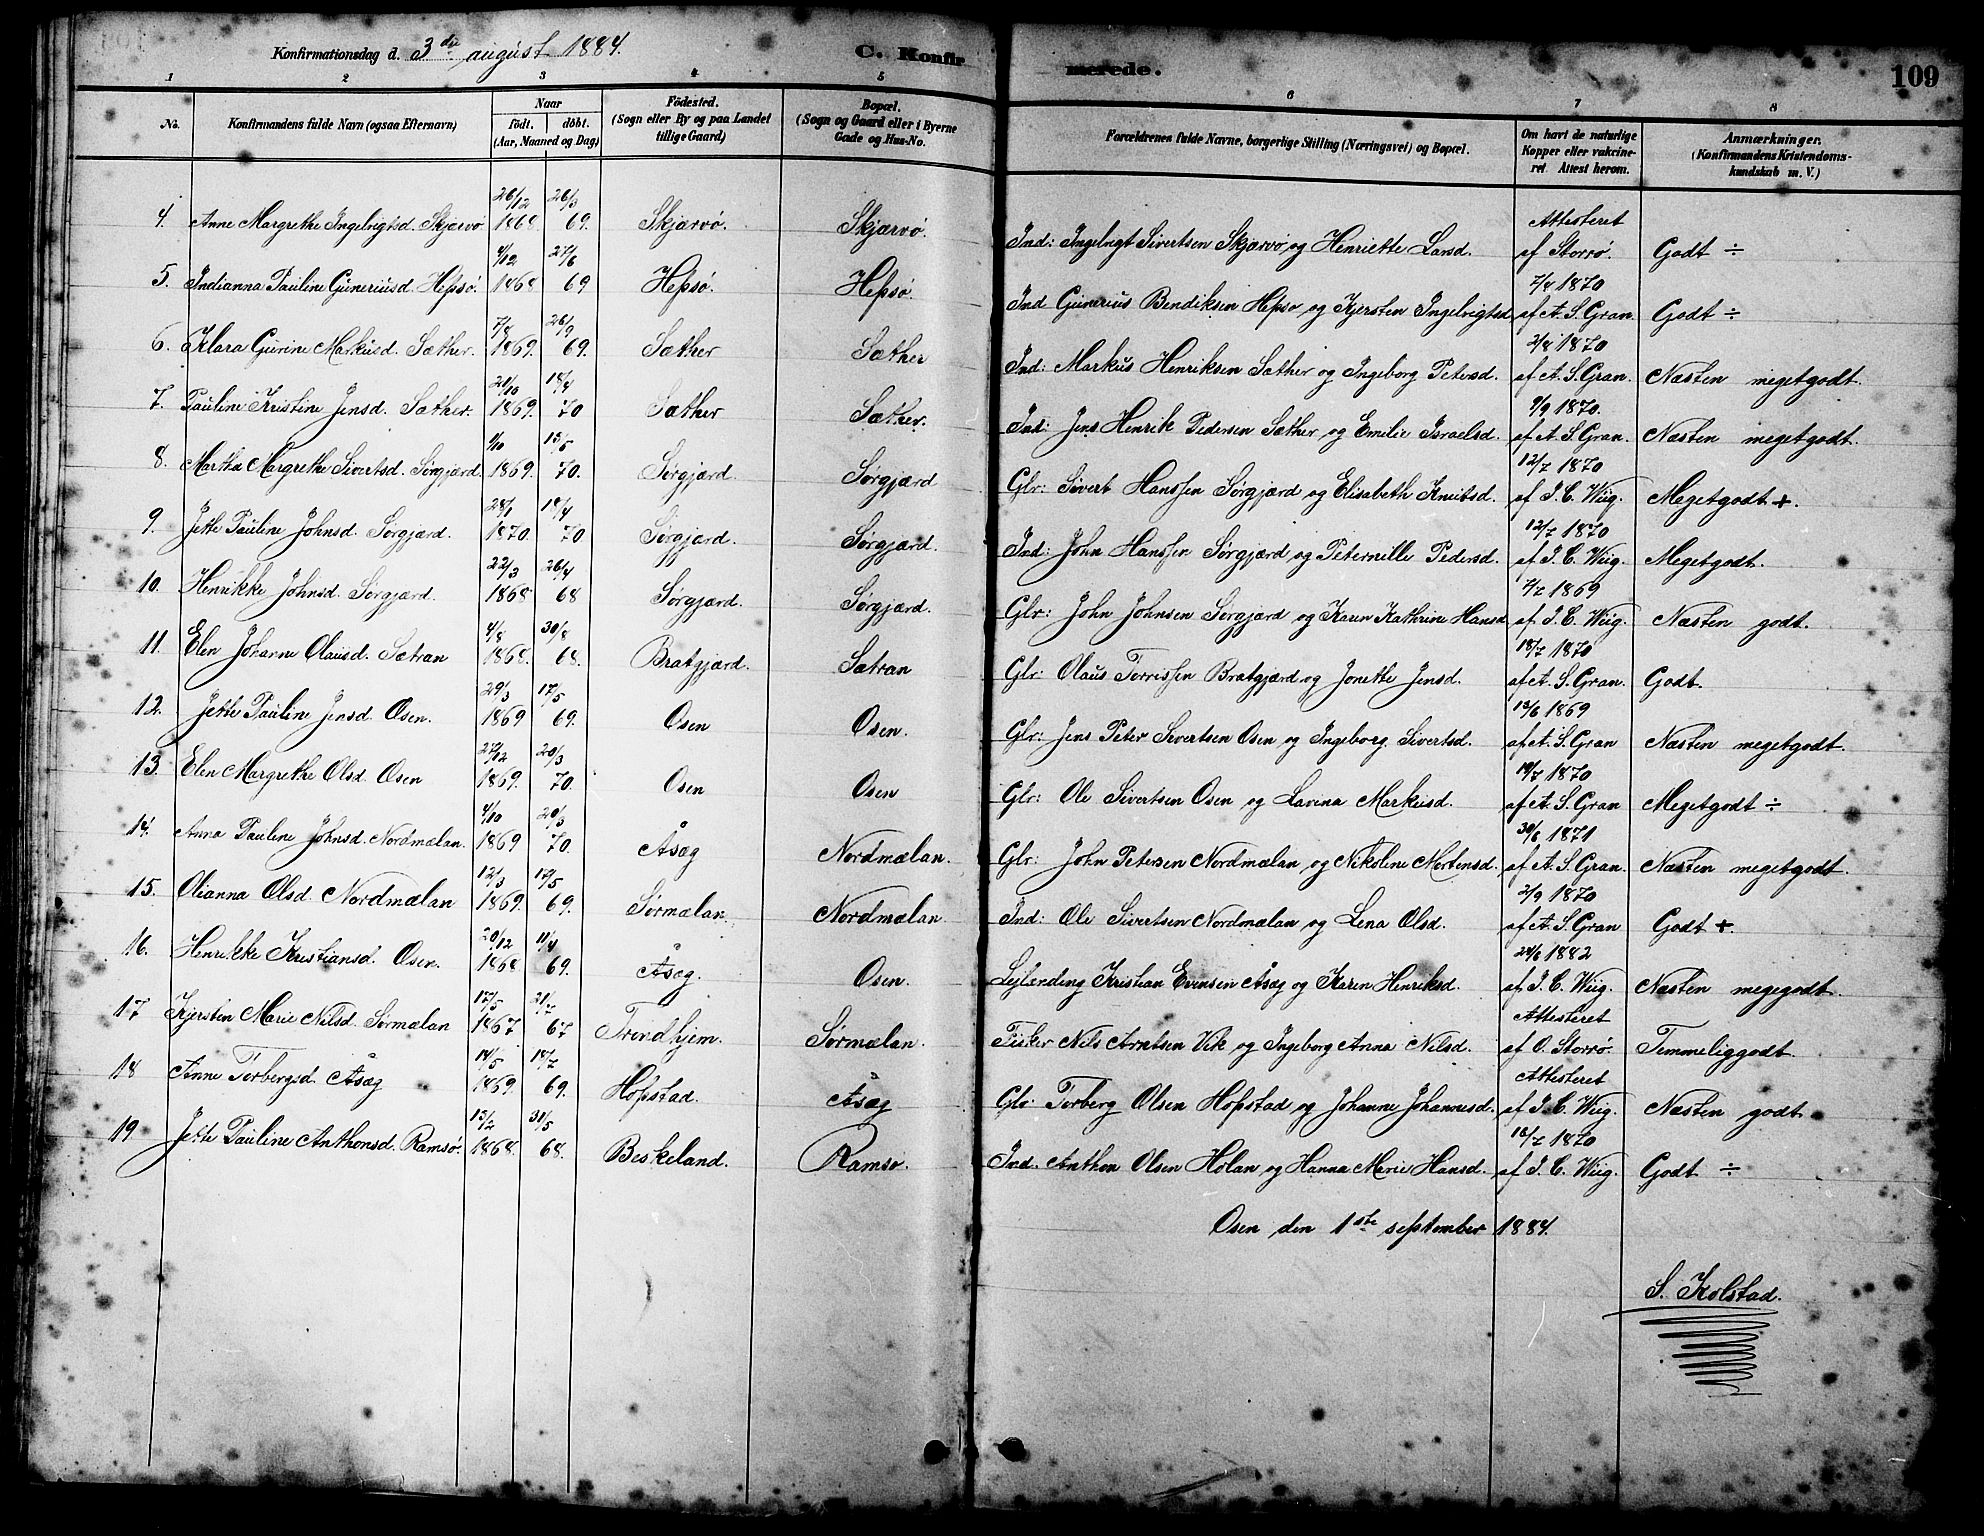 Konfirmationsdag d. 3die august 1884.
C. Konfirmerede.
109
1 2 3 4 5 6 7 8
No.
Konfirmandens fulde Navn (ogsaa Efternavn)
Naar
födt. döbt.
(Aar, Maaned og Dag)
Födested.
(Sogn eller By og paa Landet
tillige Gaard)
Bopæl.
(Sogn og Gaard eller i Byerne
Gade og Hus-No.
Forældrenes fulde Navne, borgerlige Stilling (Næringsvei) og Bopæl.
Om havt de naturlige
Kopper eller vakcine-
ret Attest herom.
Anmærkninger.
(Konfirmandens Kristendoms-
kundskab m. V.)
26/12 26/3 Attesteret
4. Anne Margrethe Ingelvigtsd. Skjærvö 1868. 69. Skjærvö. Skjærvö. Ind: Ingelvigt Sivertsen Skjærvö og Henriette Larsd. af Storrö. Godt ÷
4/12 27/6 7/4 1870
5. Indianna Pauline Guneriusd. Hepsö. 1868 69 Hepsö. Hepsö. Ind Gunerius Bendiksen Hepsö og Kjersten Ingelvigtsd af A. S. Gran. Godt ÷
7/8 26/9 2/4 1870
6. Klara Gurine Markusd. Sæther. 1869. 69. Sæther Sæther Ind: Markus Henriksen Sæther og Ingeborg Petersd. af A. S. Gran. Næsten megetgodt.
20/10 18/4 9/9 1870.
7. Pauline Kristine Jensd. Sæther. 1869. 70 Sæther Sæther. Ind: Jens Henrik Pedersen Sæther og Emilie Israelsd. af A. S. Gran. Næsten megetgodt.
9/10 15/5 12/7 1870
8. Martha Margrethe Sivertsd. Sörgjærd. 1869. 70. Sörgjærd. Sörgjærd Glr: Sivert Hanssen Sörgjærd og Elisabeth Knutsd. af J. C. Wiig. Megetgodt +.
28/1 18/4 12/7 1870
9. Jette Pauline Johnsd. Sörgjærd. 1870. 70 Sörgjærd. Sörgjærd. Ind: John Hanssen Sörgjærd og Peternille Pedersd. af J. C. Wiig. Megetgodt.
22/3 26/4 7/7 1869
10. Henrikke Johnsd. Sörgjærd. 1868 68 Sörgjærd. Sörgjærd. Glr: John Johnsen Sörgjærd og Karen Kathrine Hansd af J. C. Wiig. Næsten godt.
4/8 30/8 18/7 1870
11. Elen Johanne Olausd. Sætran 1868. 68. Bratgjærd. Sætran Glr: Olaus Torrissen Bratgjærd og Jonette Jensd. af A. S. Gran. Godt.
29/3 17/5 13/6 1869
12. Jette Pauline Jensd. Osen. 1869 69. Osen Osen. Glr: Jens Peter Sivertsen Osen og Ingeborg Sivertsd. af A. S. Gran Næsten megetgodt.
27/12 20/3 19/7 1870
13. Elen Margrethe Olsd. Osen 1869. 70. Osen Osen Glr: Ole Sivertsen Osen og Lavina Markusd. af A. S. Gran Megetgodt ÷
4/10 20/3 30/6 1871
14. Anna Pauline Johnsd. Nordmælan. 1869 70. Åsæg Nordmælan. Glr: John Petersen Nordmælan og Nikoline Mortensd. af A. S. Gran. Næsten megetgodt.
12/3 17/5 2/9 1870
15. Olianna Olsd. Nordmælan 1869. 69. Sörmælan. Nordmælan Ind: Ole Sivertsen Nordmælan og Lena Olsd. af A. S. Gran Godt +.
20/12 11/4 24/6 1882
16. Henrikke Kristiansd. Osen. 1868 69. Åsæg. Osen. Leilænding Kristian Evensen Åsæg og Karen Henriksd. af J. C. Wiig. Næsten megegodt.
17/5 21/7 Attesteret
17 Kjersten Marie Nilsd. Sörmælan 1867 67 Trondhjem. Sörmælan. Fisker Nils Arntsen Vik og Ingeborg Anna Nilsd. af O. Storrö. Temmeliggodt.
14/5 18/7 Attesteret
18 Anne Torbergsd. Åsæg 1869. 69. Hopstad. Åsæg Glr. Torberg Olsen Hopstad og Johanne Johannesd. af J. C. Wiig. Næsten godt.
13/2 31/5 18/7 1870
19 Jette Pauline Anthonsd. Ramsö. 1868. 68. Beskeland. Ramsö. Ind. Anthon Olsen Hölan og Hanna Marie Hansd. af J. C. Wiig. Godt ÷
Osen den 1ste september 1884.
S. Kolstad.